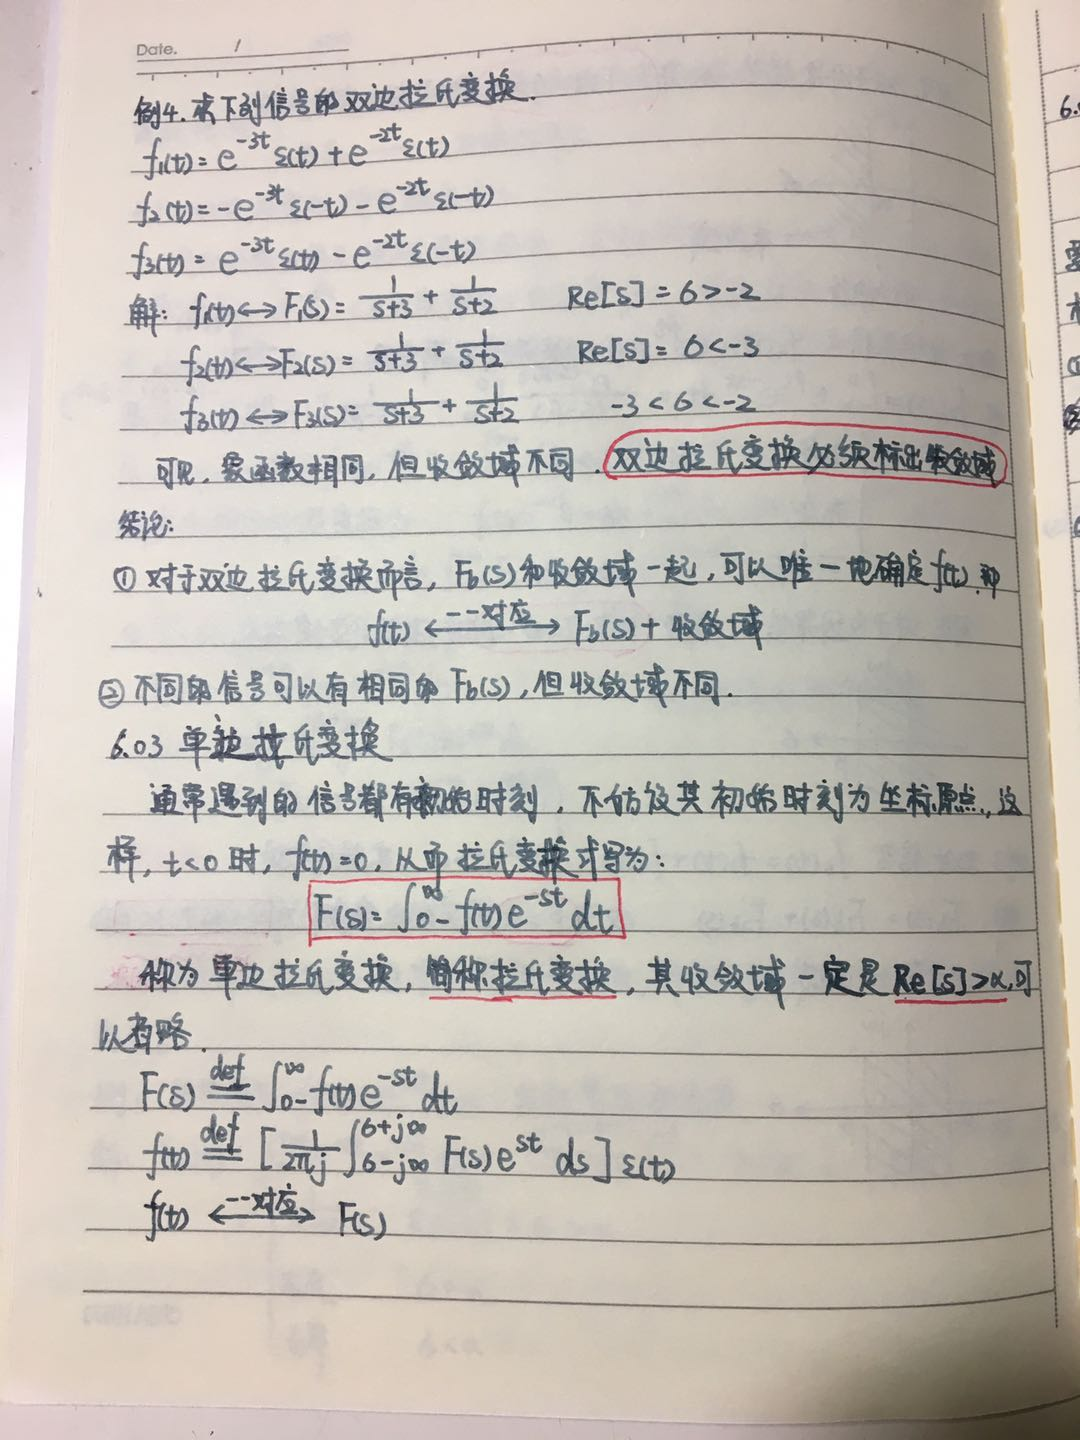 Date. /
例4.求下列信号的双边拉氏变换.
f₁(t)=e^{-3t}ε(t)+e^{-2t}ε(t)
f₂(t)=-e^{-3t}ε(-t)-e^{-2t}ε(-t)
f₃(t)=e^{-3t}ε(t)-e^{-2t}ε(-t)
解: f₁(t)↔F₁(s)=1/(s+3)+1/(s+2) Re[s]=σ>-2
f₂(t)↔F₂(s)=1/(s+3)+1/(s+2) Re[s]=σ<-3
f₃(t)↔F₃(s)=1/(s+3)+1/(s+2) -3<σ<-2
可见,象函数相同,但收敛域不同.双边拉氏变换必须标出收敛域
结论:
①对于双边拉氏变换而言,F_b(s)和收敛域一起,可以唯一地确定f(t).即
f(t) ⟷一一对应 F_b(s)+收敛域
②不同的信号可以有相同的F_b(s),但收敛域不同.
6.03 单边拉氏变换
通常遇到的信号都有初始时刻,不妨设其初始时刻为坐标原点,这
样,t<0时,f(t)=0,从而拉氏变换式写为:
F(s)=∫_{0-}^{∞}f(t)e^{-st}dt
称为单边拉氏变换,简称拉氏变换,其收敛域一定是Re[s]>α,可
以省略.
F(s) def= ∫_{0-}^{∞}f(t)e^{-st}dt
f(t) def= [1/(2πj)∫_{σ-j∞}^{σ+j∞}F(s)e^{st}ds]ε(t)
f(t) ⟷一一对应 F(s)